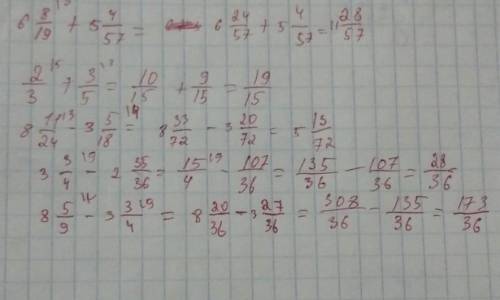 6 8/19 + 5 4/57 = 6 24/57 + 5 4/57 = 11 28/57
2/3 + 3/5 = 10/15 + 9/15 = 19/15
8 11/24 - 3 5/18 = 8 33/72 - 3 20/72 = 5 13/72
3 3/4 - 2 35/36 = 15/4 - 107/36 = 135/36 - 107/36 = 28/36
8 5/9 - 3 3/4 = 8 20/36 - 3 27/36 = 308/36 - 135/36 = 173/36